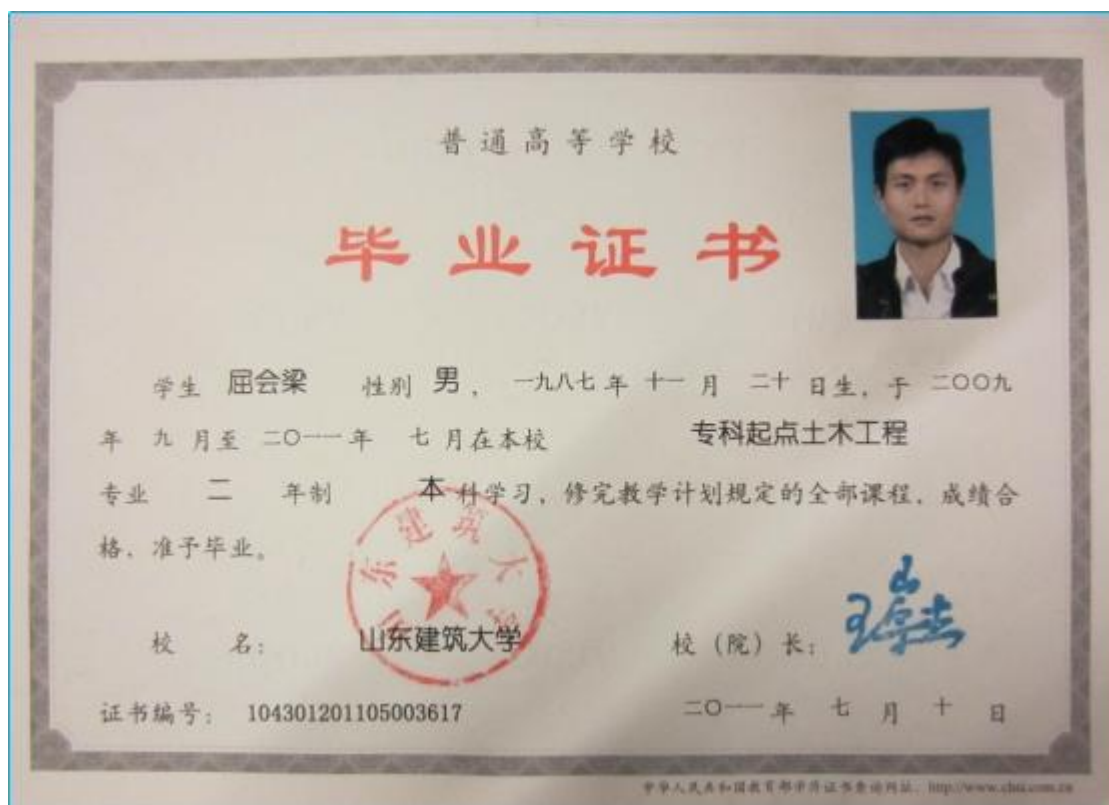 普通高等学校
毕业证书
学生 屈会梁 性别 男，一九八七年 十一月 二十日生，于 二〇〇九
年 九月至 二〇一一年 七月在本校 专科起点土木工程
专业 二 年制 本科学习，修完教学计划规定的全部课程，成绩合
格，准予毕业。
山东建筑大学
校 名： 山东建筑大学 校（院）长：
证书编号： 104301201105003617 二〇一一年 七月十日
中华人民共和国教育部学历证书查询网址：http://www.chsi.com.cn